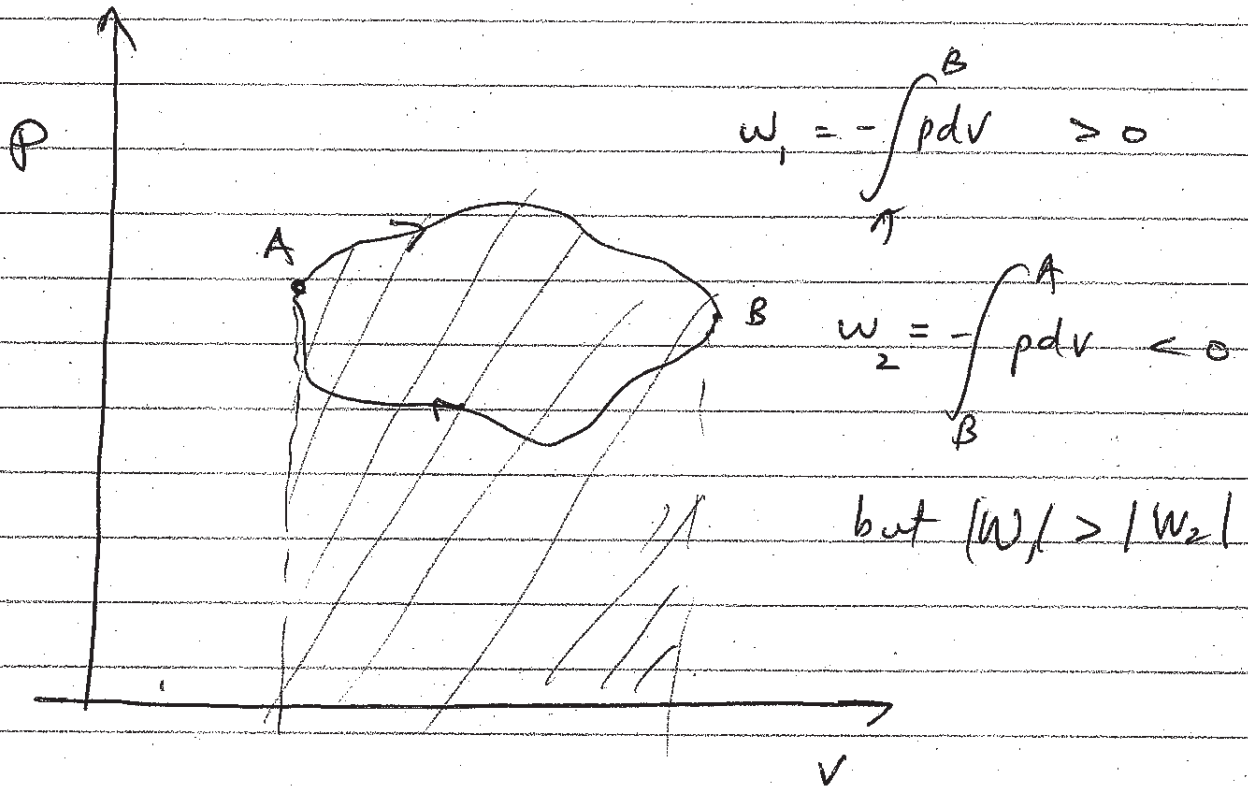 P
A
B
V
W₁ = -∫_A^B pdV > 0
W₂ = -∫_B^A pdV < 0
but |W₁| > |W₂|